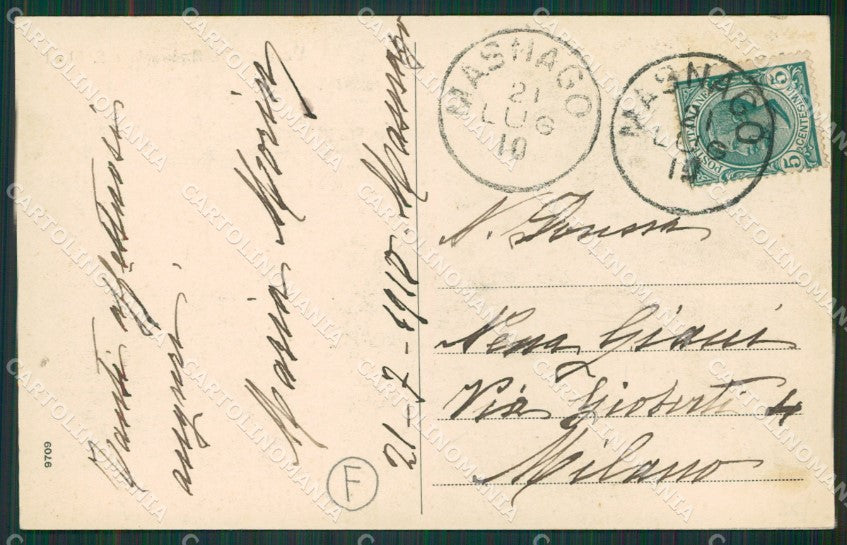 Tanti affettuosi
auguri
Maria Moria
21-7-1910 Masnago
6076
F
MASNAGO
21
LUG
10
MASNAGO
LUG
10
POSTE ITALIANE
CENTESIMI
5
5
N. Donna
Nena Giani
Via Gioberti 4
Milano
CARTOLINOMANIA